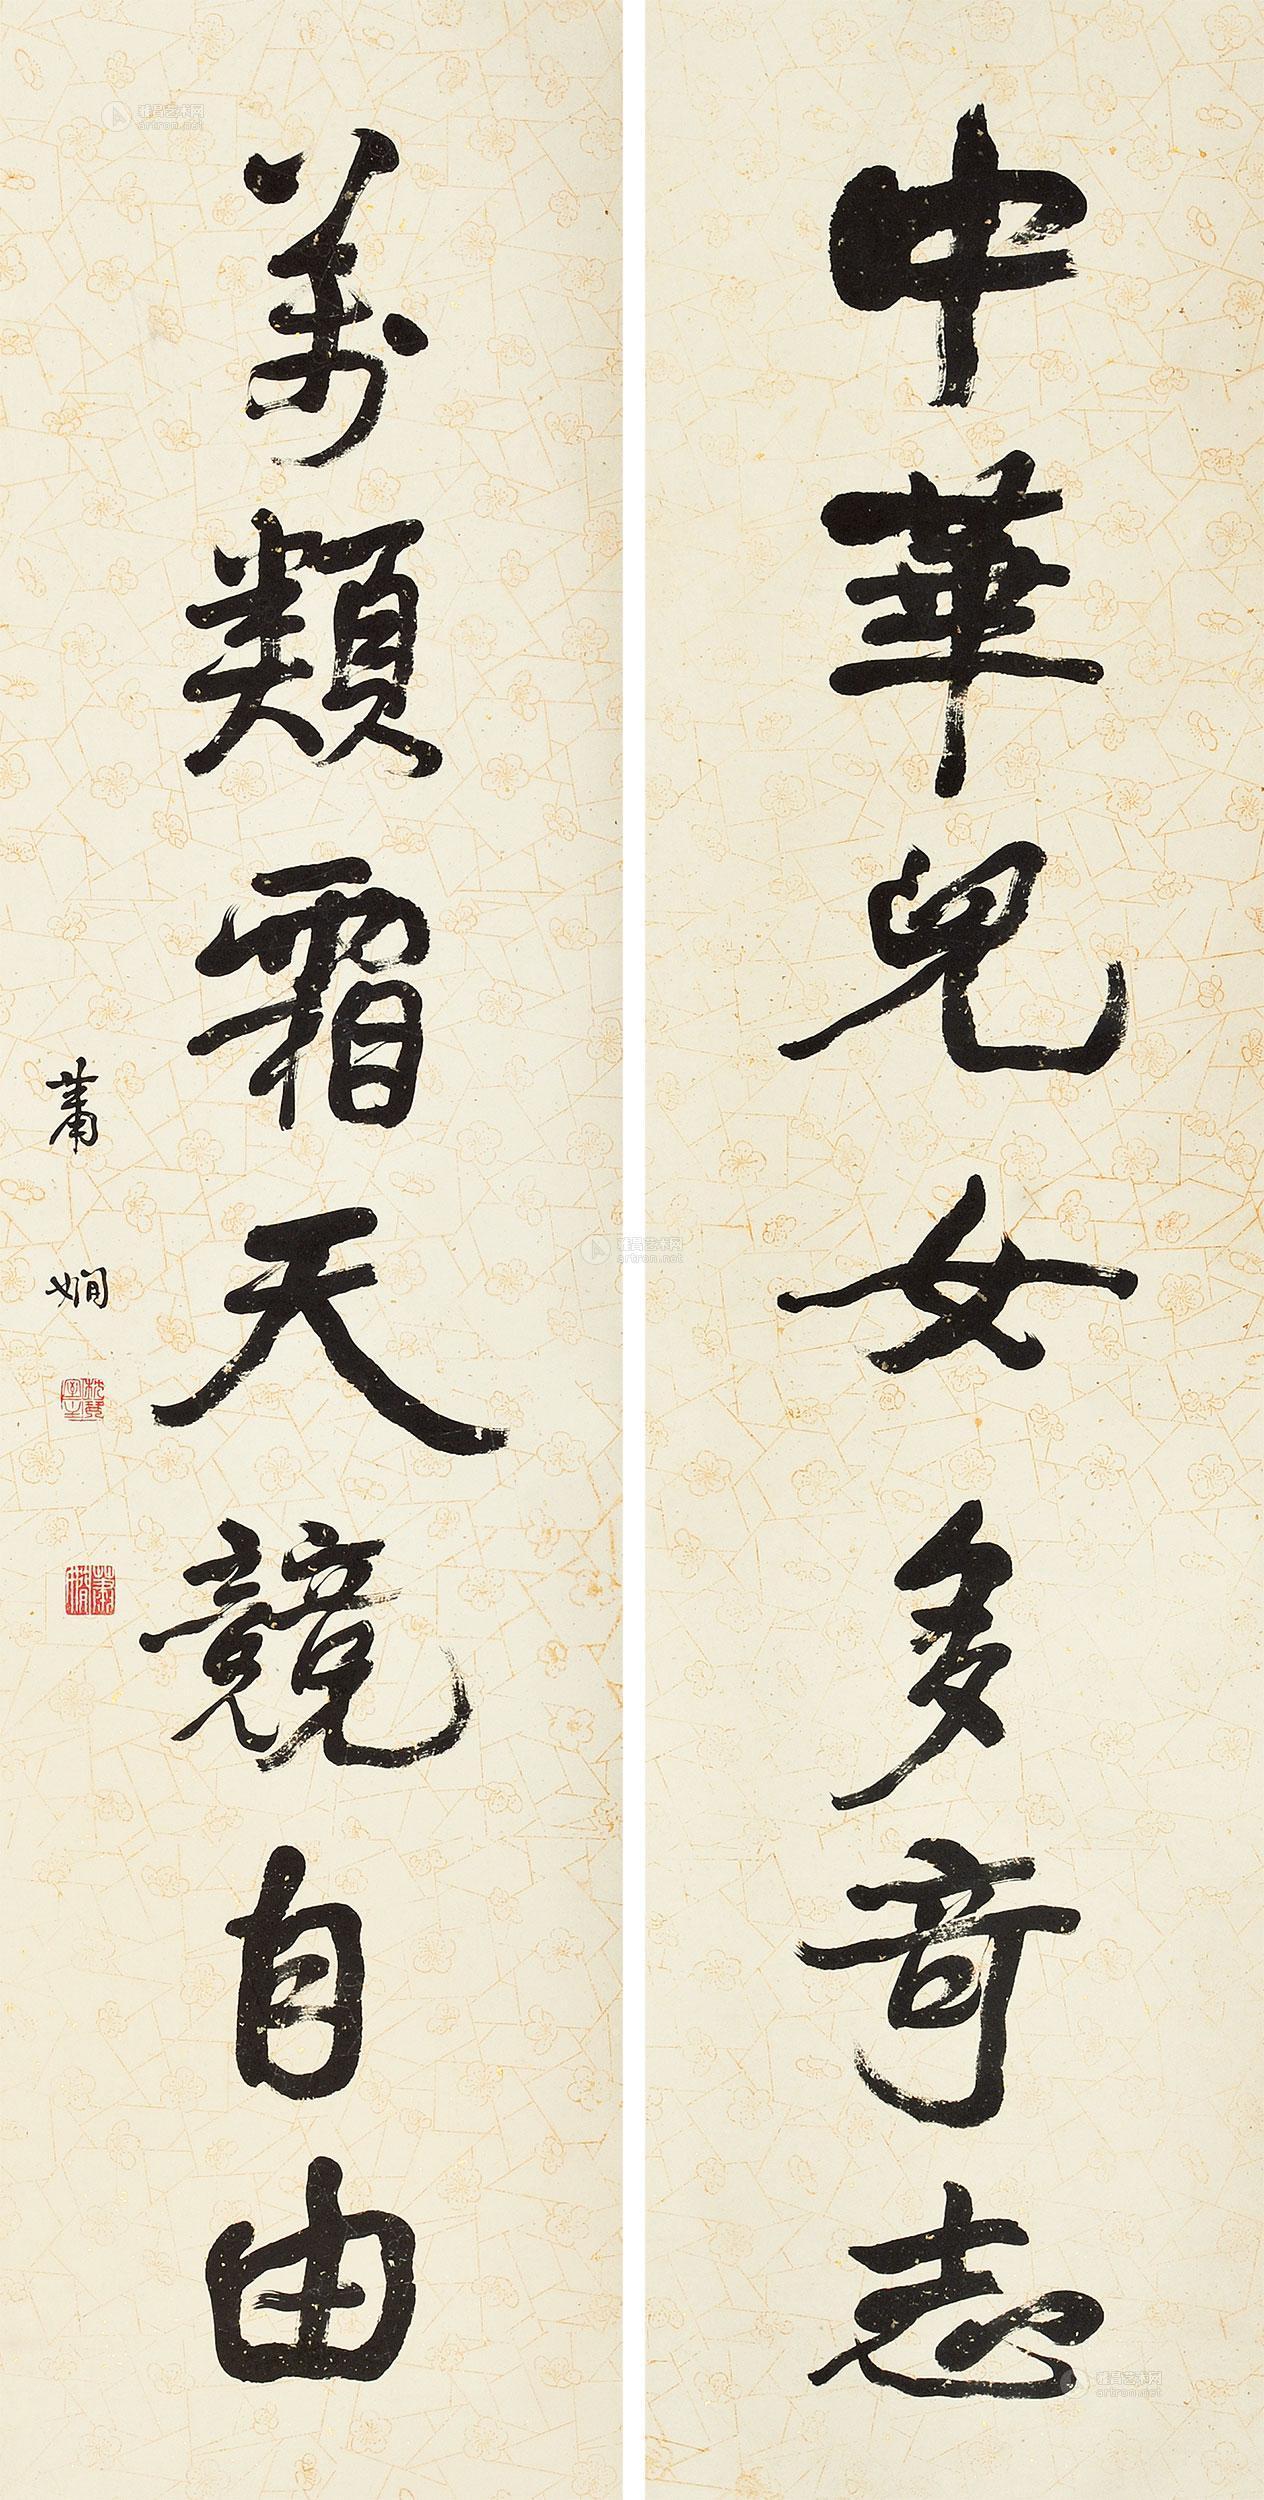 中華兒女多奇志
萬類霜天競自由
蕭嫻
蕭嫻
雅昌艺术网
artron.net
雅昌艺术网
artron.net
雅昌艺术网
artron.net